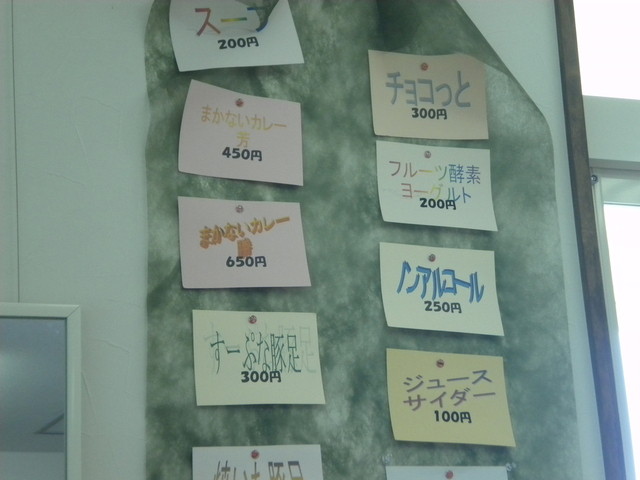 スープ
200円
まかないカレー
芳
450円
まかないカレー
勝
650円
すーぷな豚足
300円
チョコっと
300円
フルーツ酵素
ヨーグルト
200円
ノンアルコール
250円
ジュース
サイダー
100円